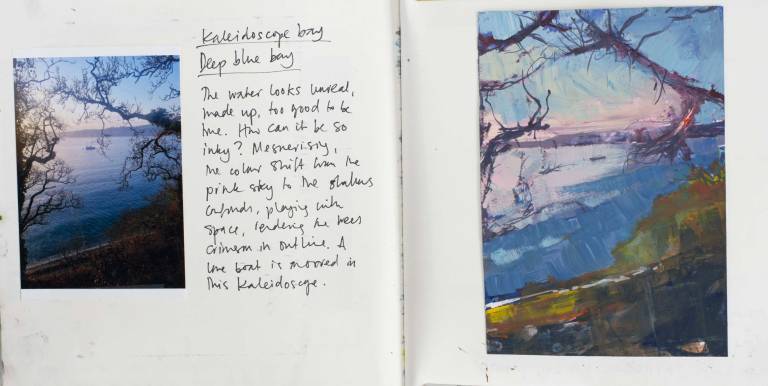 Kaleidoscope bay
Deep blue bay
The water looks unreal,
made up, too good to be
true. How can it be so
inky? Mesmerising,
the colour shift from the
pink sky to the
, playing with
space, rendering the trees
crimson in outline. A
lone boat is moored in
this kaleidoscope.